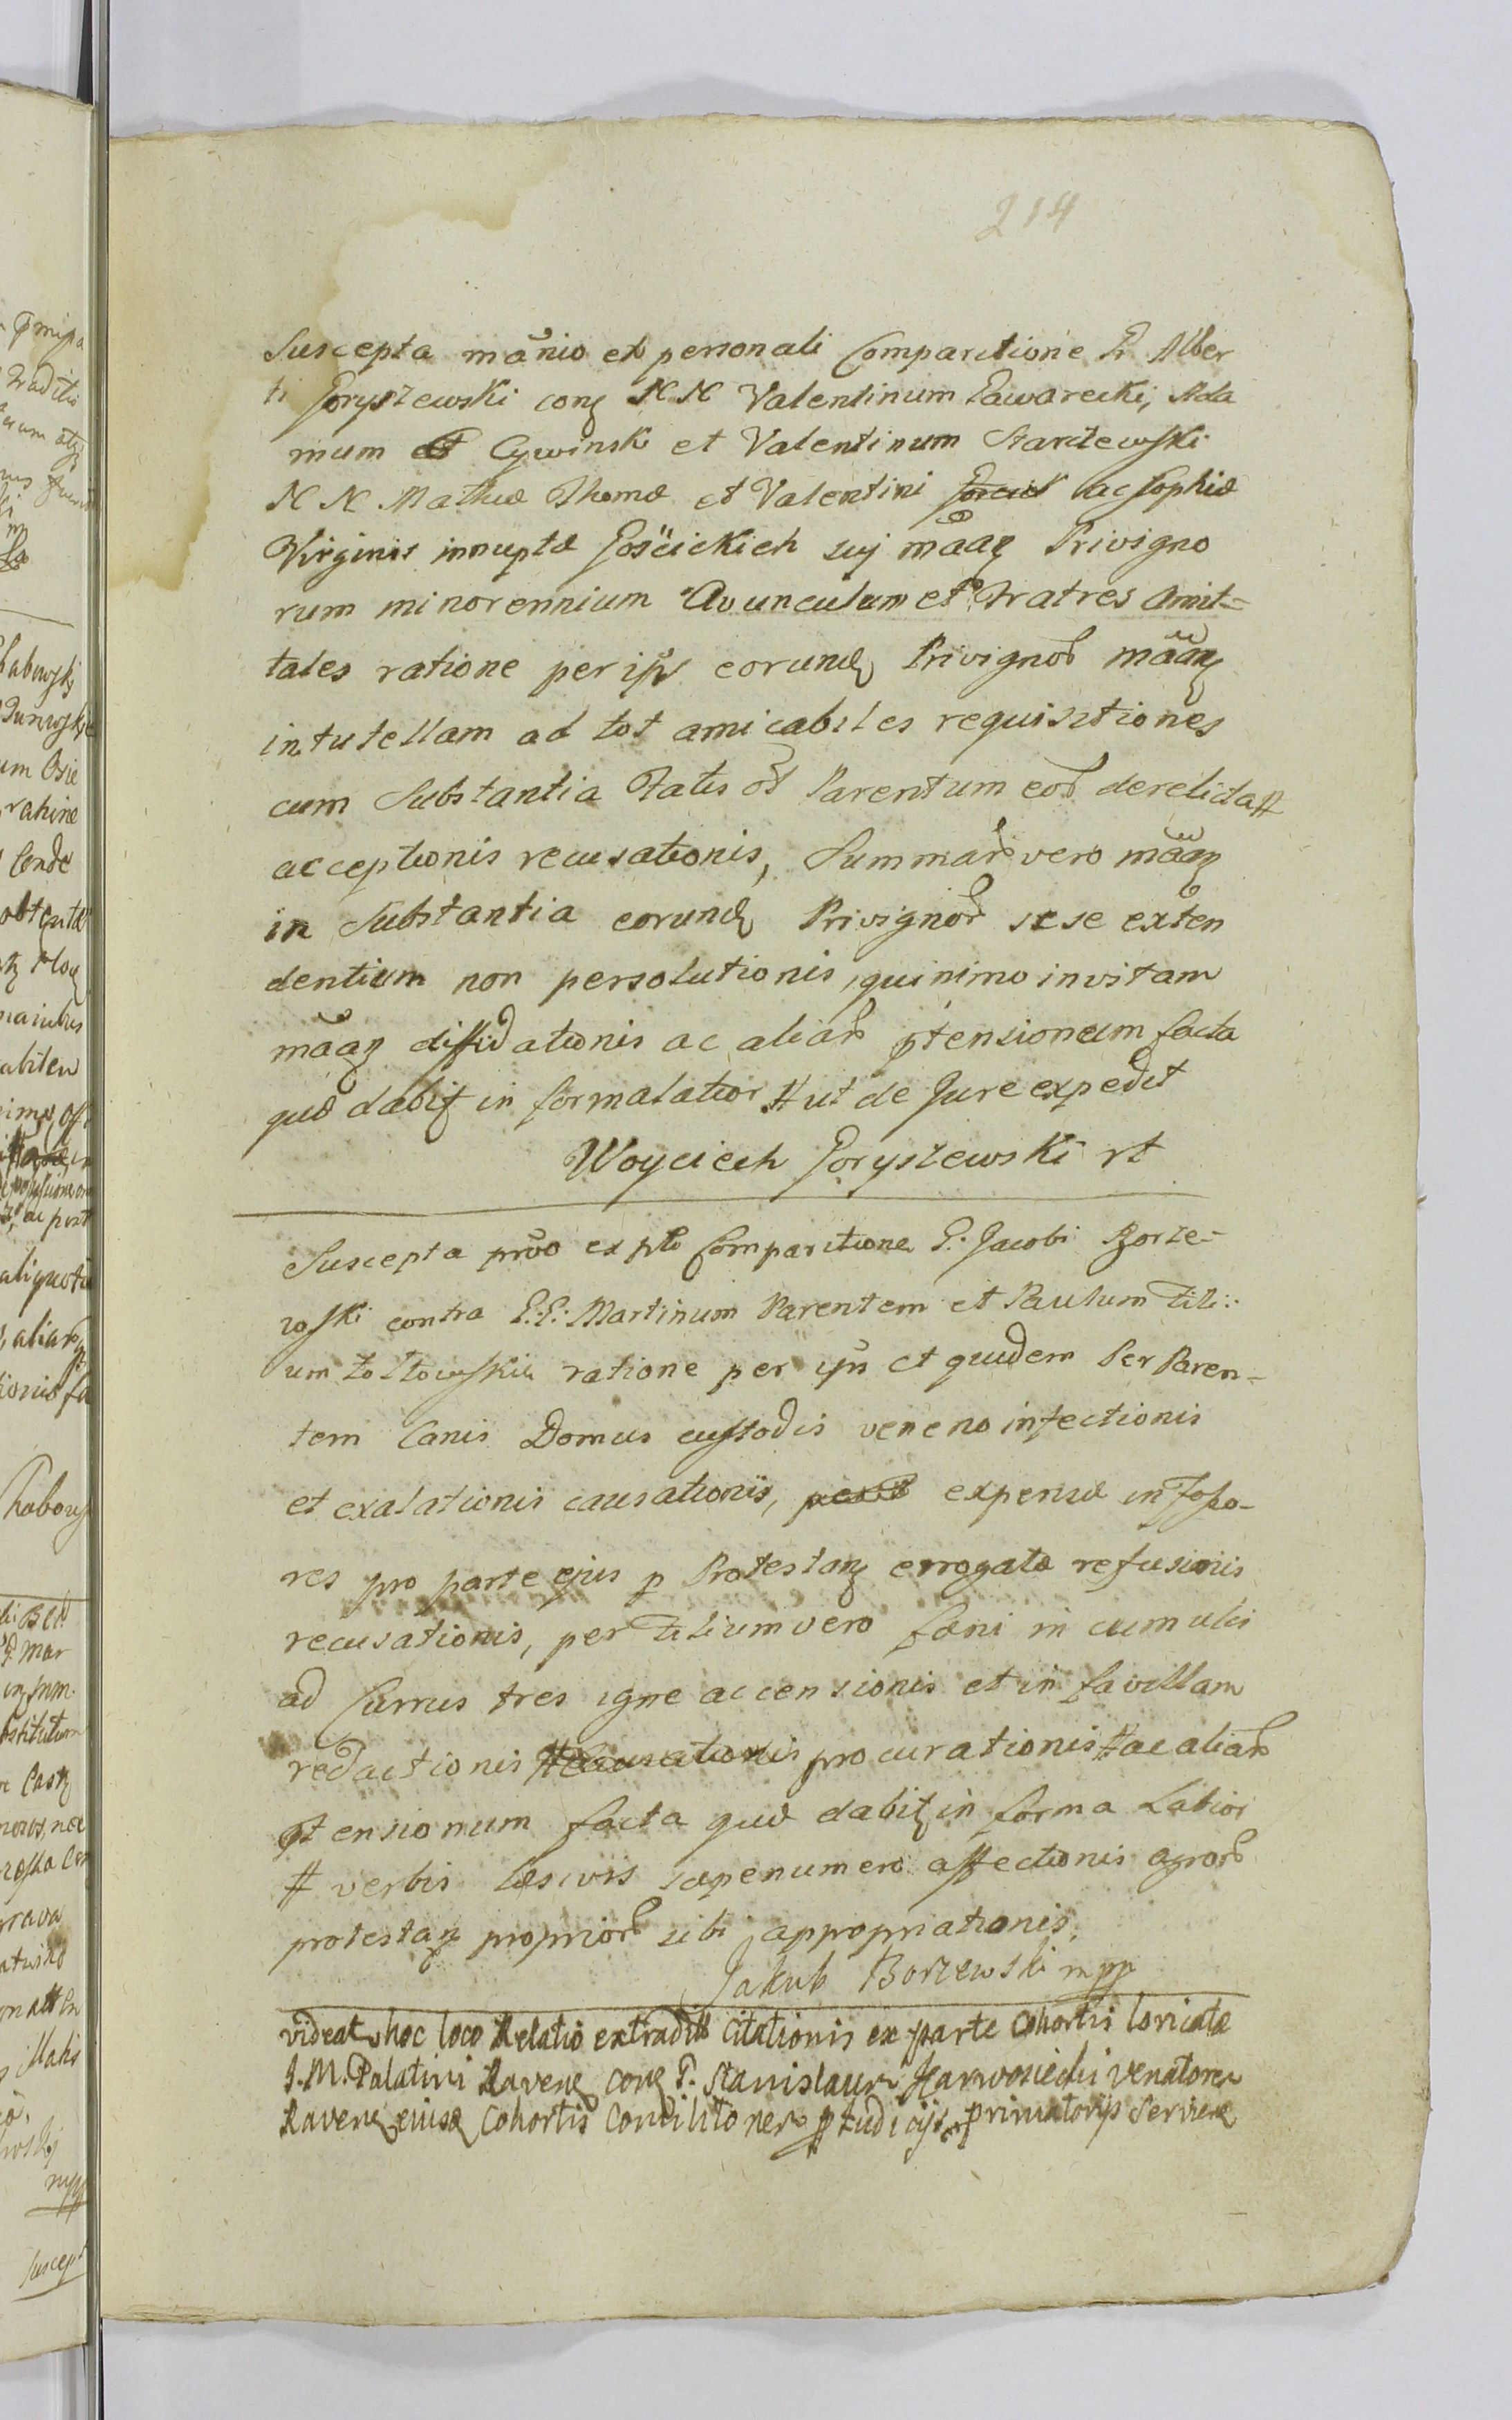 214
Suscepta mãnio ex personali Comparitione G. Alber
ti Goryszewski conq N N Valentinum Gawarecki, Ada
mum Cywinski et Valentinum Starczewski
N N. Mathiæ Thomæ et Valentini ac Sophiæ
Virginis innuptæ Gośćickich suj mãaq Privigno
rum minorennium Avunculum et Fratres Amit=
tales ratione per ips eorund Privignor mãaq
in tutellam ad tot amicabiles requisitiones
cum Substantia Parentum eor derelicta #
acceptionis recusationis, Summar vero mãaq
in Substantia eorund Privignor sese exten
dentium non persolutionis, quinimo in vitam
mãaq diffidationis ac aliar ptensionum facta
quæ dabit in forma latior # ut de Jure expedit
Woyciech Goryszewski rt
Suscepta prõo ex pli Comparitione G. Jacobi Borze-
wski contra G.G. Martinum Parentem et Paulum Fili:
um Żołtowskie ratione per ips et quidem Per Paren-
tem Canis Domus custodis veneno infectionis
et exalationis causationis, expensæ in Fosso-
res pro parte ejus p Protestanq erogatæ refusionis
recusationis, per Filium vero fæni in cumulis
ad Currus tres igne accensionis et in favillam
redactionis procurationis # ac aliar
ptensionum facta quæ dabit in forma Latior
# verbis læsivis sæpenumero affectionis agror
protestanq proprior sibi appropriationis.
Jakub Borzewski mpp
videat hoc loco Relatio extradit Citationis ex parte Cohortis loricatæ
J.M. Palatini Ravenq conq G. Stanislaum Venatorem
Ravenq eiusd Cohortis Comilitonem p Judicijs Primatorijs Serviens